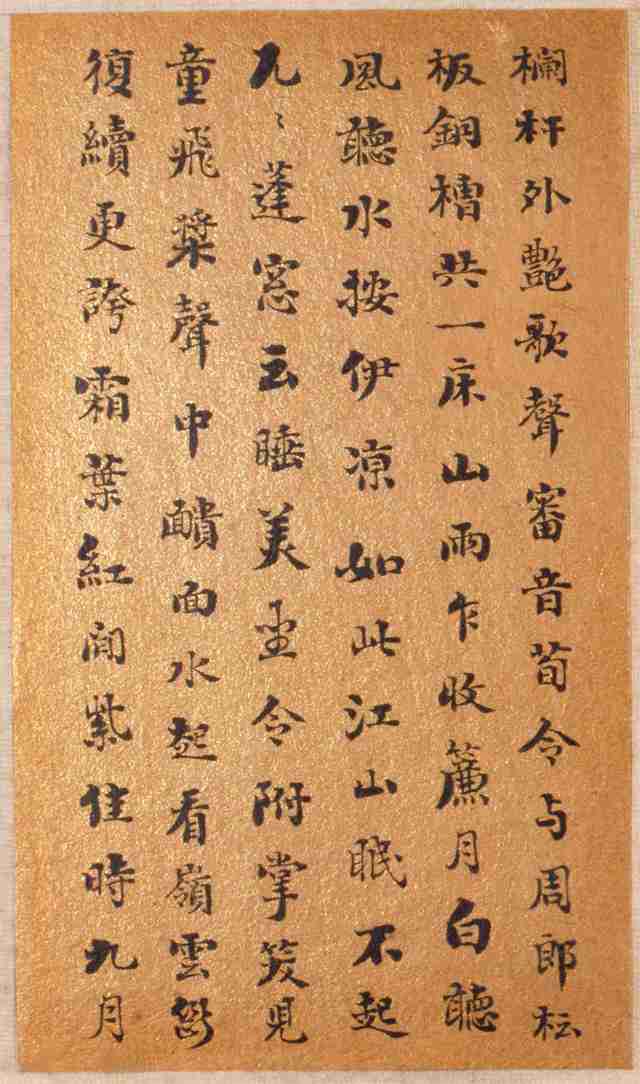 欄杆外艷歌聲審音荀令与周郎枟
板銅槽共一床山雨乍收簾月白聽
風聽水按伊凉如此江山眠不起
兀〻蓬窓云睡美坐令附掌笑見
童飛槳聲中靧面水起看嶺雲斷
復續更誇霜葉紅间紫住時九月